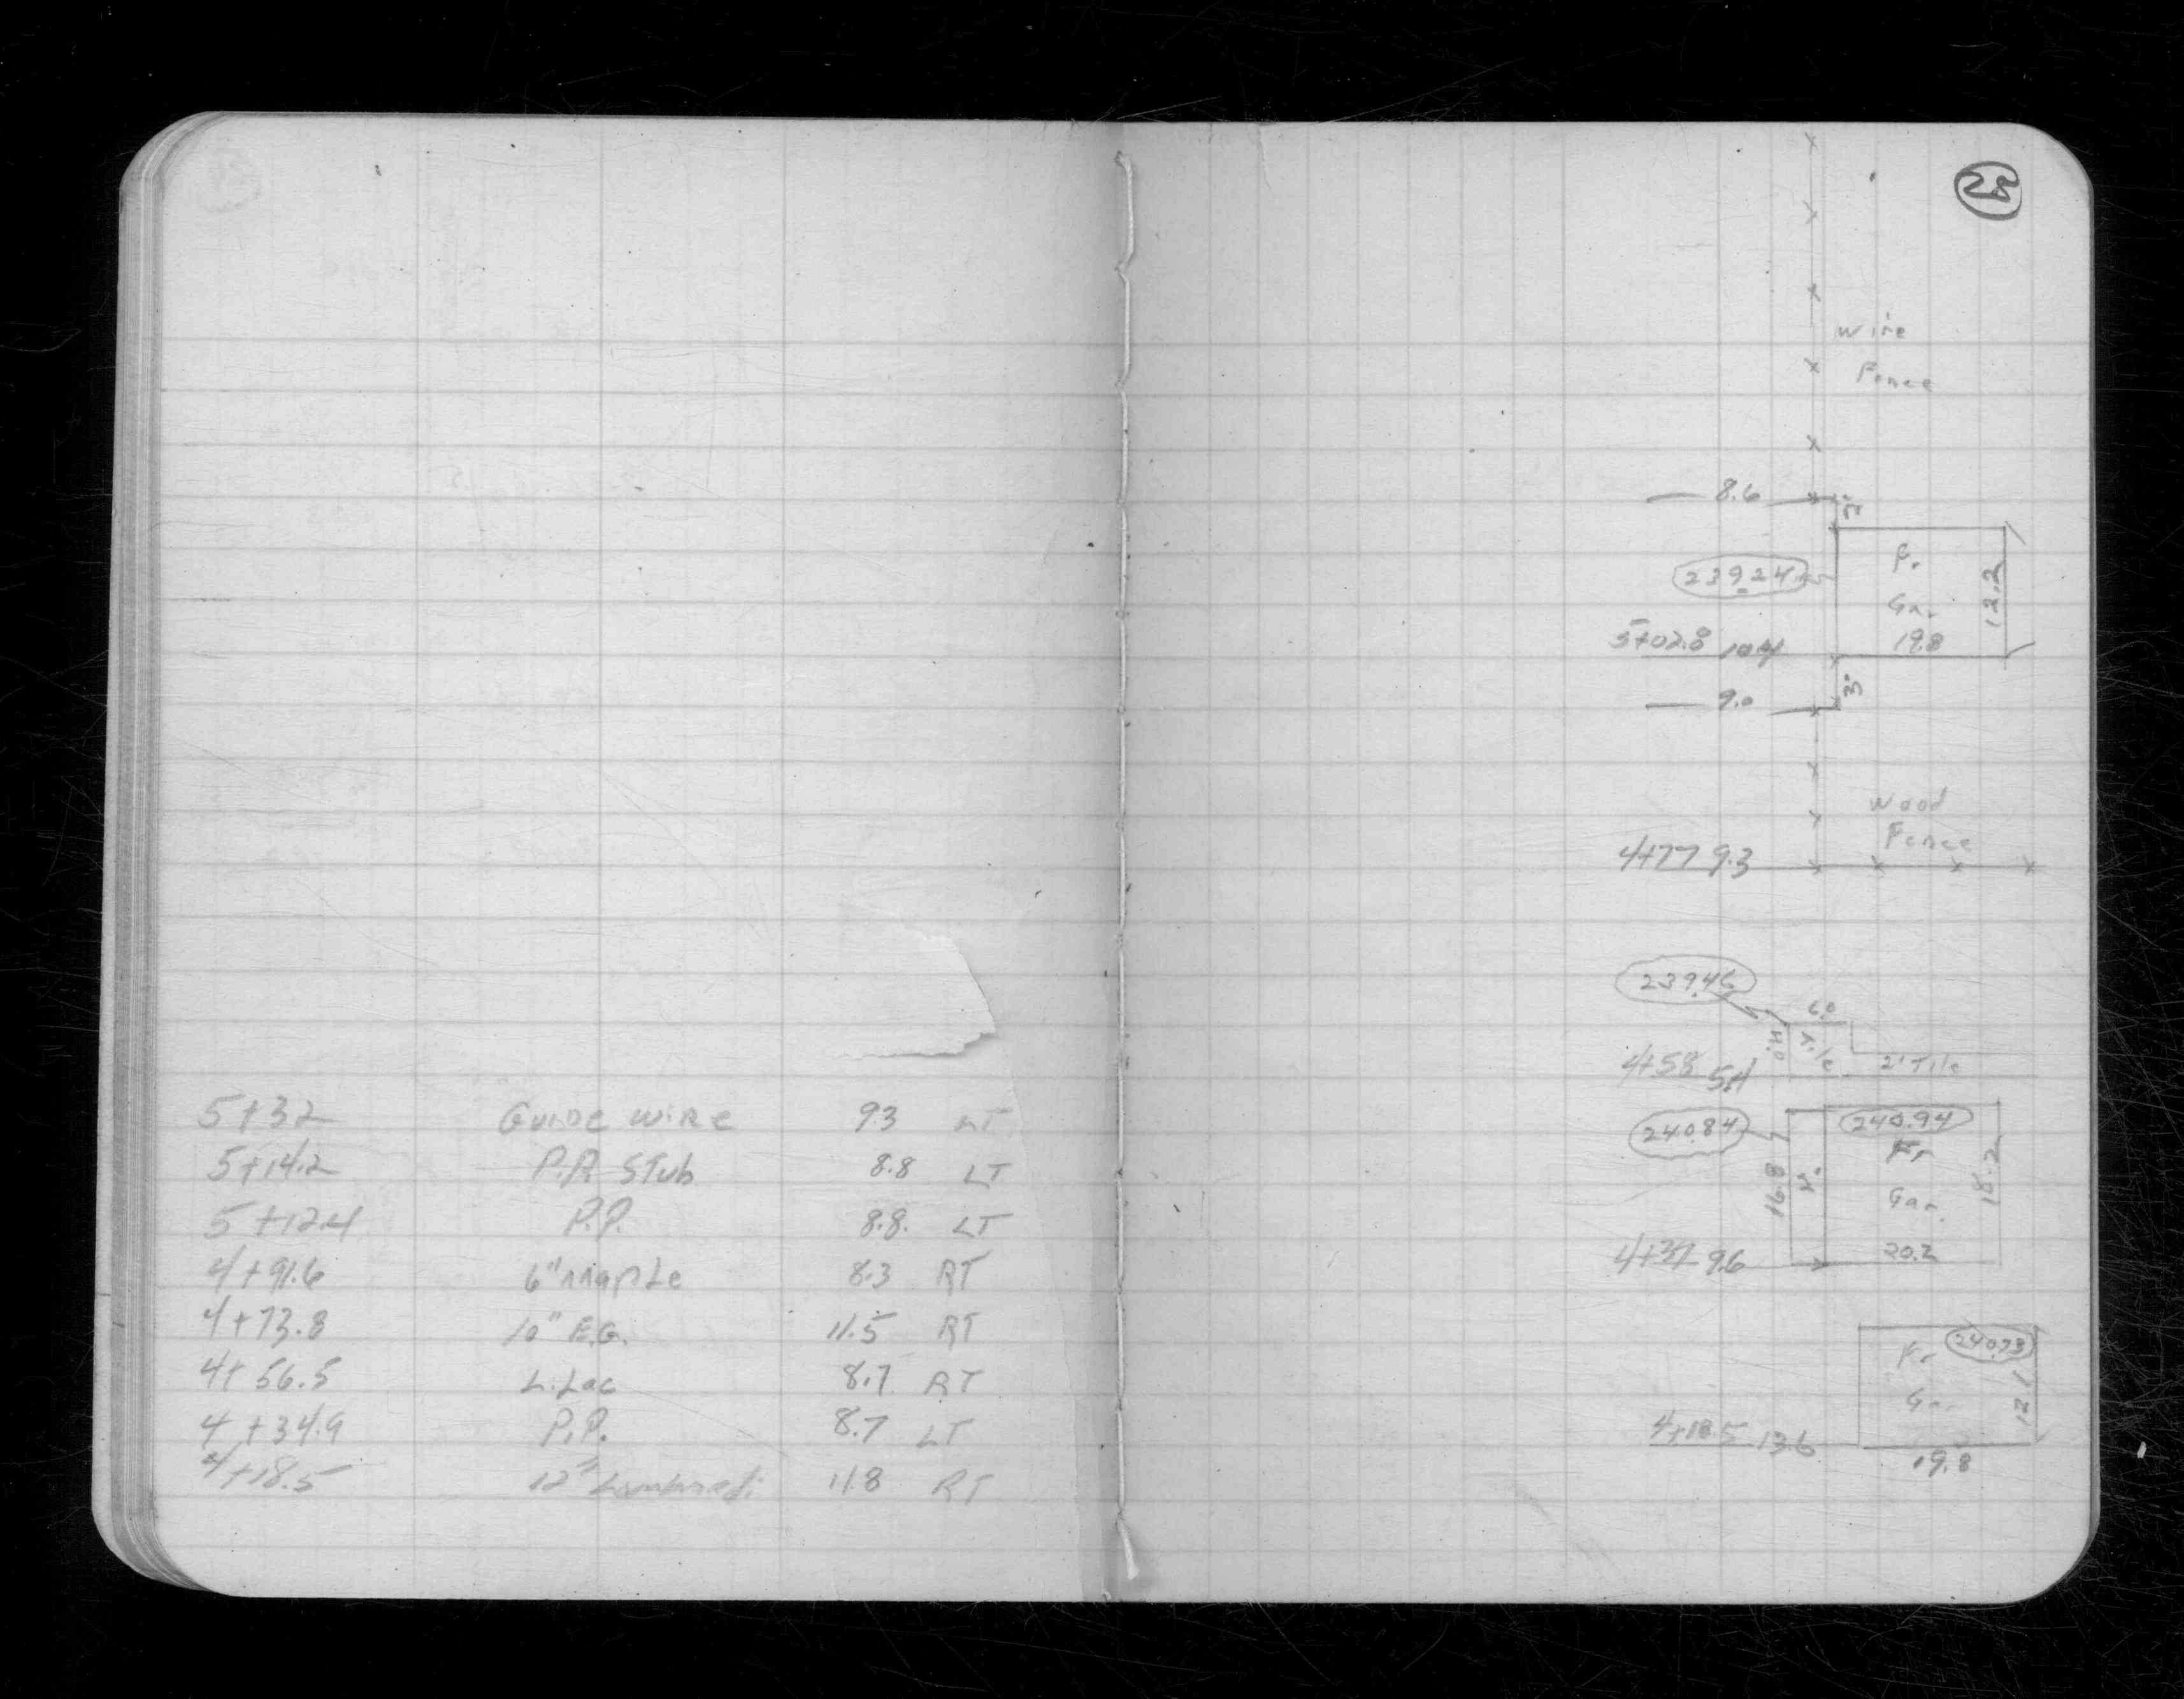 5+32 Guide Wire 9.3 LT
5+14.2 P.P. Stub 8.8 LT
5+12.4 P.P. 8.8 LT
4+91.6 6" Maple 8.3 RT
4+73.8 10" E.G. 11.5 RT
4+56.5 L.Lac 8.7 RT
4+34.9 P.P. 8.7 LT
4+18.5 12" 11.8 RT
Wire
Fence
8.6
239.24
Fr.
Gar.
19.8
12.2
5+02.8 10.4
3.0
9.0
Wood
Fence
4+77 9.3
239.46
6.0
4.0
Tile
2' Tile
4+58 5.4
240.84
240.94
Fr
Gar.
20.2
16.8
18.2
4+37 9.6
Fr
240.73
Gar.
12.1
4+18.5 13.6
19.8